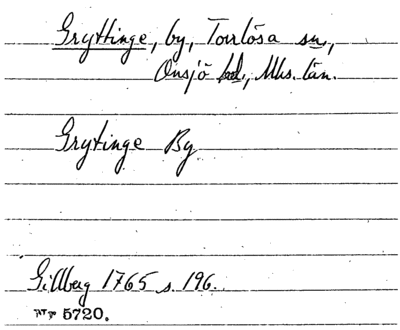 Gryttinge, by, Torrlösa sn,
Onsjö hd., Mhs. län.
Grytinge By
Gillberg 1765 s. 196.
5720.